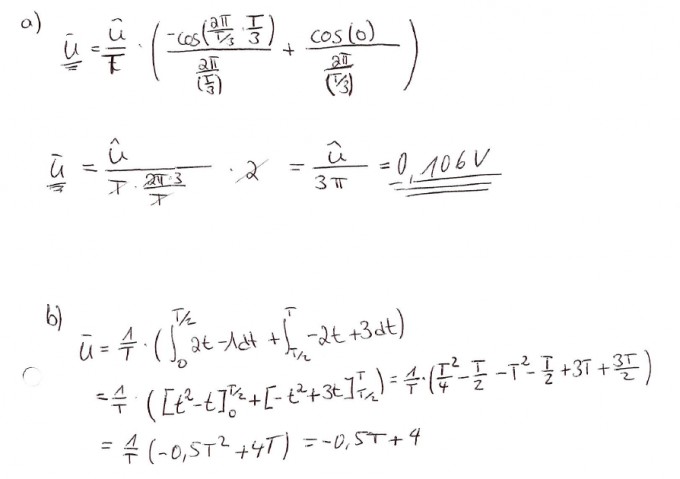 a) ū = û/T · ( -cos(2π/(T/3) · T/3) / (2π/(T/3)) + cos(0) / (2π/(T/3)) )
ū = û / (T · 2π·3/T) · 2 = û/(3π) = 0,106V
b) ū = 1/T · (∫₀^(T/2) 2t-1dt + ∫_(T/2)^T -2t+3dt)
= 1/T · ([t²-t]₀^(T/2) + [-t²+3t]_(T/2)^T) = 1/T · (T²/4 - T/2 - T² - T/2 + 3T + 3T/2)
= 1/T (-0,5T² + 4T) = -0,5T + 4